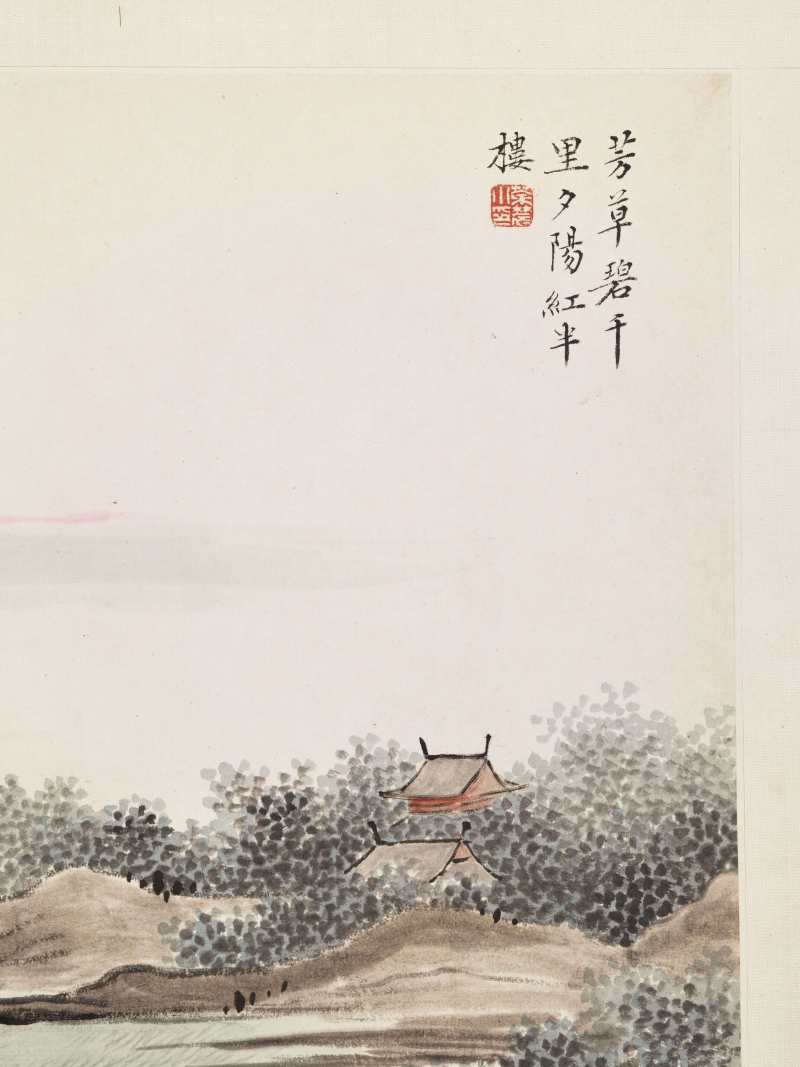 芳草碧千
里夕陽紅半
樓